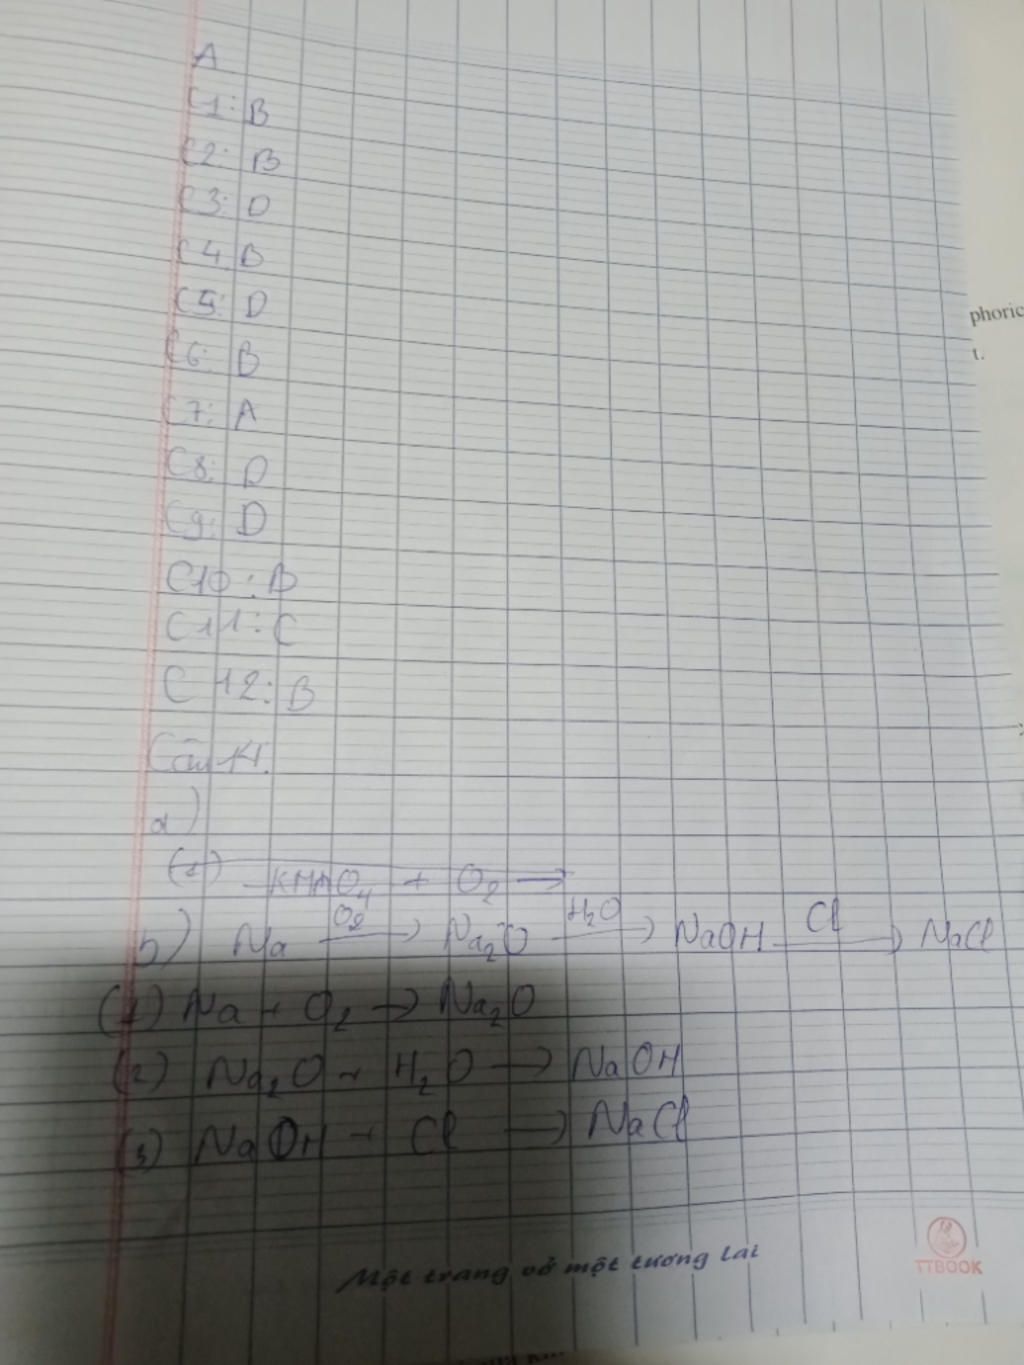 A
C1: B
C2: B
C3: D
C4: B
C5: D
C6: B
C7: A
C8: D
C9: D
C10: B
C11: C
C12: B
Câu 14.
a)
(1) KMnO4 + O2 →
b) Na —O2→ Na2O —H2O→ NaOH —Cl→ NaCl
(1) Na + O2 → Na2O
(2) Na2O + H2O → NaOH
(3) NaOH + Cl → NaCl
Một trang vở một tương lai
TTBOOK
phoric
t.